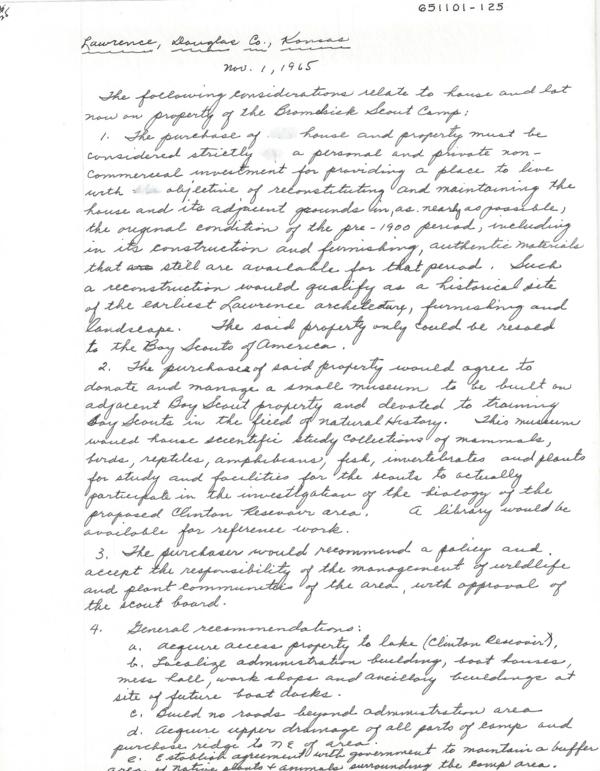 651101-125
Lawrence, Douglas Co., Kansas
Nov. 1, 1965
The following considerations relate to house and lot
now on property of the Bromelsick Scout Camp:
1. The purchase of house and property must be
considered strictly a personal and private non-
commercial investment for providing a place to live
with objective of reconstituting and maintaining the
house and its adjacent grounds in, as nearly as possible,
the original condition of the pre-1900 period, including
in its construction and furnishing, authentic materials
that still are available for that period. Such
a reconstruction would qualify as a historical site
of the earliest Lawrence architecture, furnishing and
landscape. The said property only could be resold
to the Boy Scouts of America.
2. The purchaser of said property would agree to
donate and manage a small museum to be built on
adjacent Boy Scout property and devoted to training
Boy Scouts in the field of Natural History. This museum
would house scientific study collections of mammals,
birds, reptiles, amphibians, fish, invertebrates and plants
for study and facilities for the scouts to actually
participate in the investigation of the biology of the
proposed Clinton Resevoir area. A library would be
available for reference work.
3. The purchaser would recommend a policy and
accept the responsibility of the management of wildlife
and plant communities of the area, with approval of
the scout board.
4. General recommendations:
a. Acquire access property to lake (Clinton Resevoir),
b. Localize administration building, boat houses,
mess hall, work shops and ancillary buildings at
site of future boat docks.
c. Build no roads beyond administration area
d. Acquire upper drainage of all parts of camp and
purchase ridge to NE of area.
e. Establish agreement with government to maintain a buffer
area of native plants & animals surrounding the camp area.